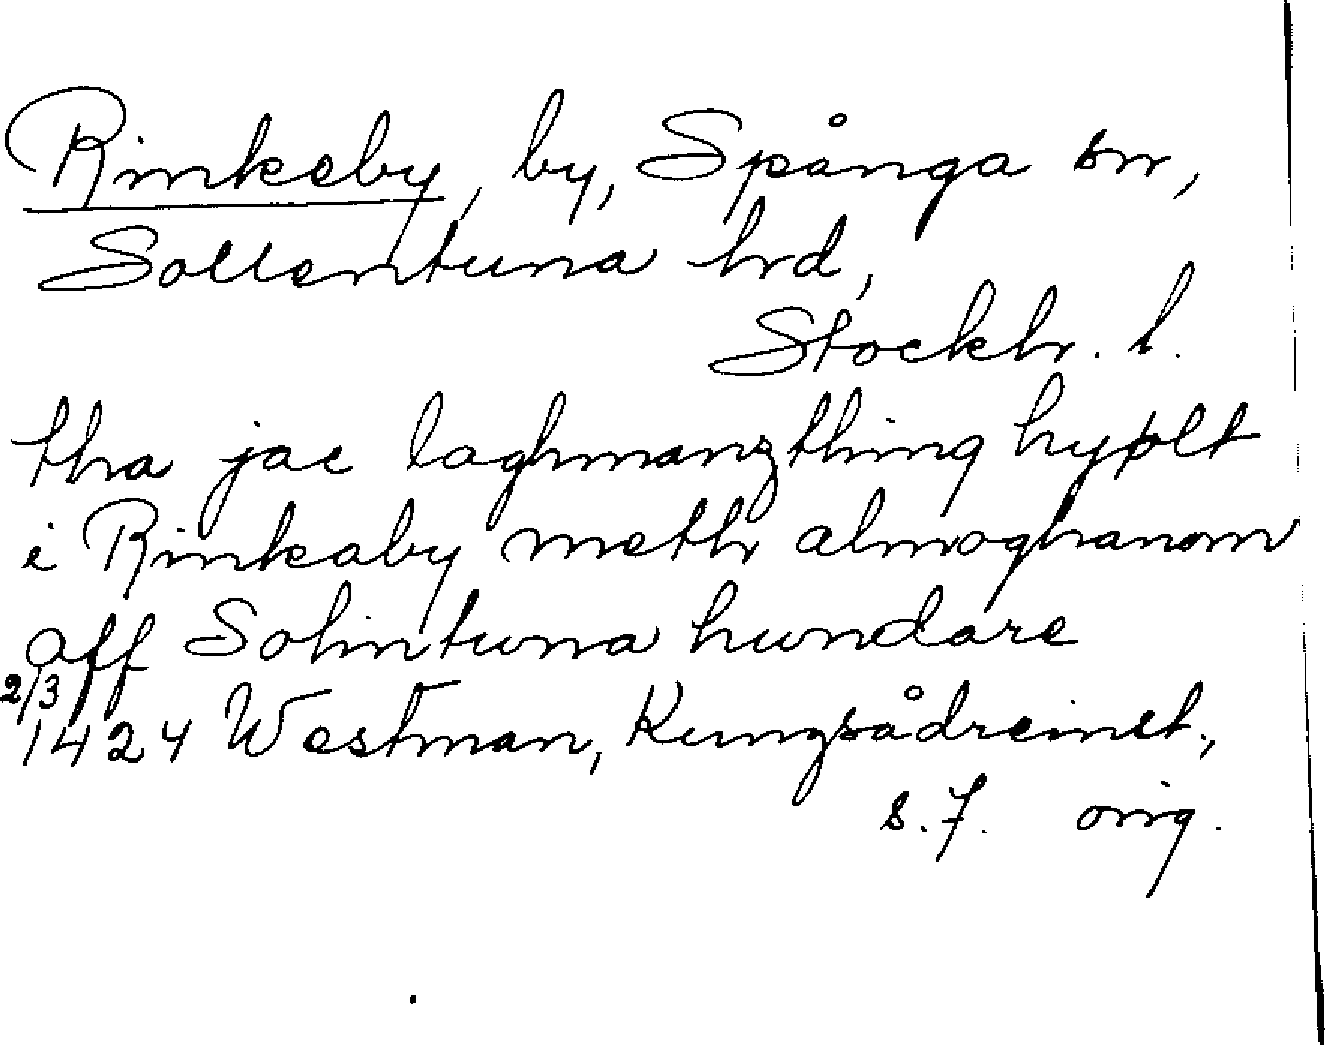 Rinkeby, by, Spånga sn,
Sollentuna hrd,
Stockh. l.
tha jac laghmanzthing hyolt
i Rinkaby meth almoghanom
aff Solintuna hundare
2/3
1424 Westman, Kungsådreinst.,
s. 7. orig.